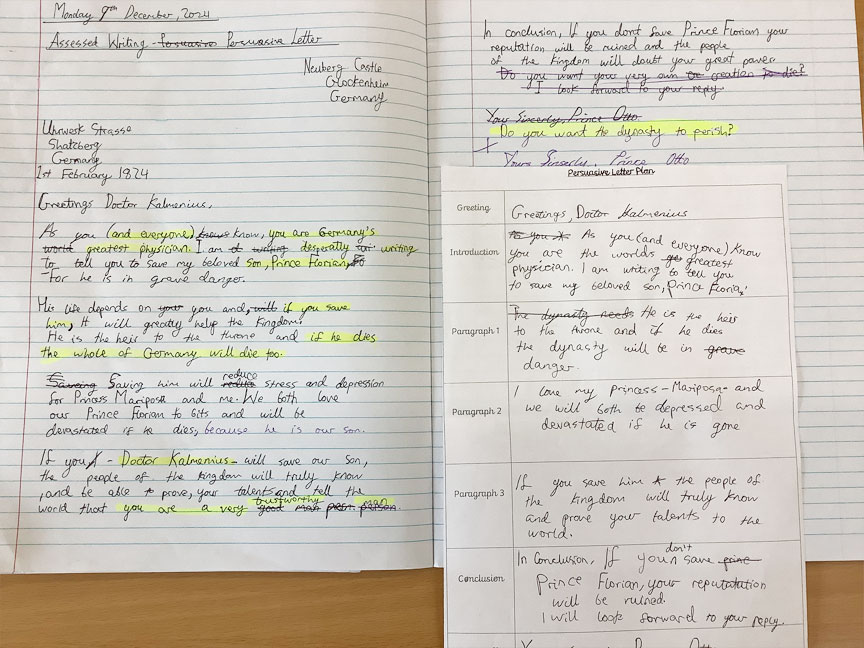 Monday 9th December, 2024
Assessed Writing - Persuasive Persuasive Letter
Neuberg Castle
Glockenheim
Germany
Uhrwesk Strasse
Shatzberg
Germany
1st February 1824
Greetings Doctor Kalmenius,
As you (and everyone) know, you are Germany's
world greatest physician. I am writing desperatly writing
to tell you to save my beloved son, Prince Florian,
for he is in grave danger.
His life depends on your you and, will if you save
him, It will greatly help the Kingdom.
He is the heir to the throne and if he dies
the whole of Germany will die too.
reduce
Saving Saving him will reduce stress and depression
for Princess Mariposa and me. We both love
our Prince Florian to bits and will be
devastated if he dies, because he is our son.
If you - Doctor Kalmenius - will save our son,
the people of the kingdom will truly know
, and be able to prove, your talents and tell the
trustworthy man
world that you are a very good man person.
In conclusion, If you dont save Prince Florian your
reputation will be ruined and the people
of the Kingdom will doubt your great power.
Do you want your very own creation to die?
I look forward to your reply
Your Sincerly, Prince Otto
Do you want the dynasty to perish?
Yours Sinserly, Prince Otto
Persuasive Letter Plan
Greeting
Greetings, Doctor Kalmenius
Introduction
As you As you (and everyone) know
you are the worlds greatest
physician. I am writing to tell you
to save my beloved son, Prince Floria,
Paragraph 1
The dynasty needs He is the heir
to the throne and if he dies
the dynasty will be in grave
danger.
Paragraph 2
I love my princess - Mariposa - and
we will both be depressed and
devastated if he is gone
Paragraph 3
If you save him the people of
the kingdom will truly know
and prove your talents to the
world.
Conclusion
don't
In Conclusion, If you save
Prince Florian, your reputation
will be ruined.
I will look forward to your reply.